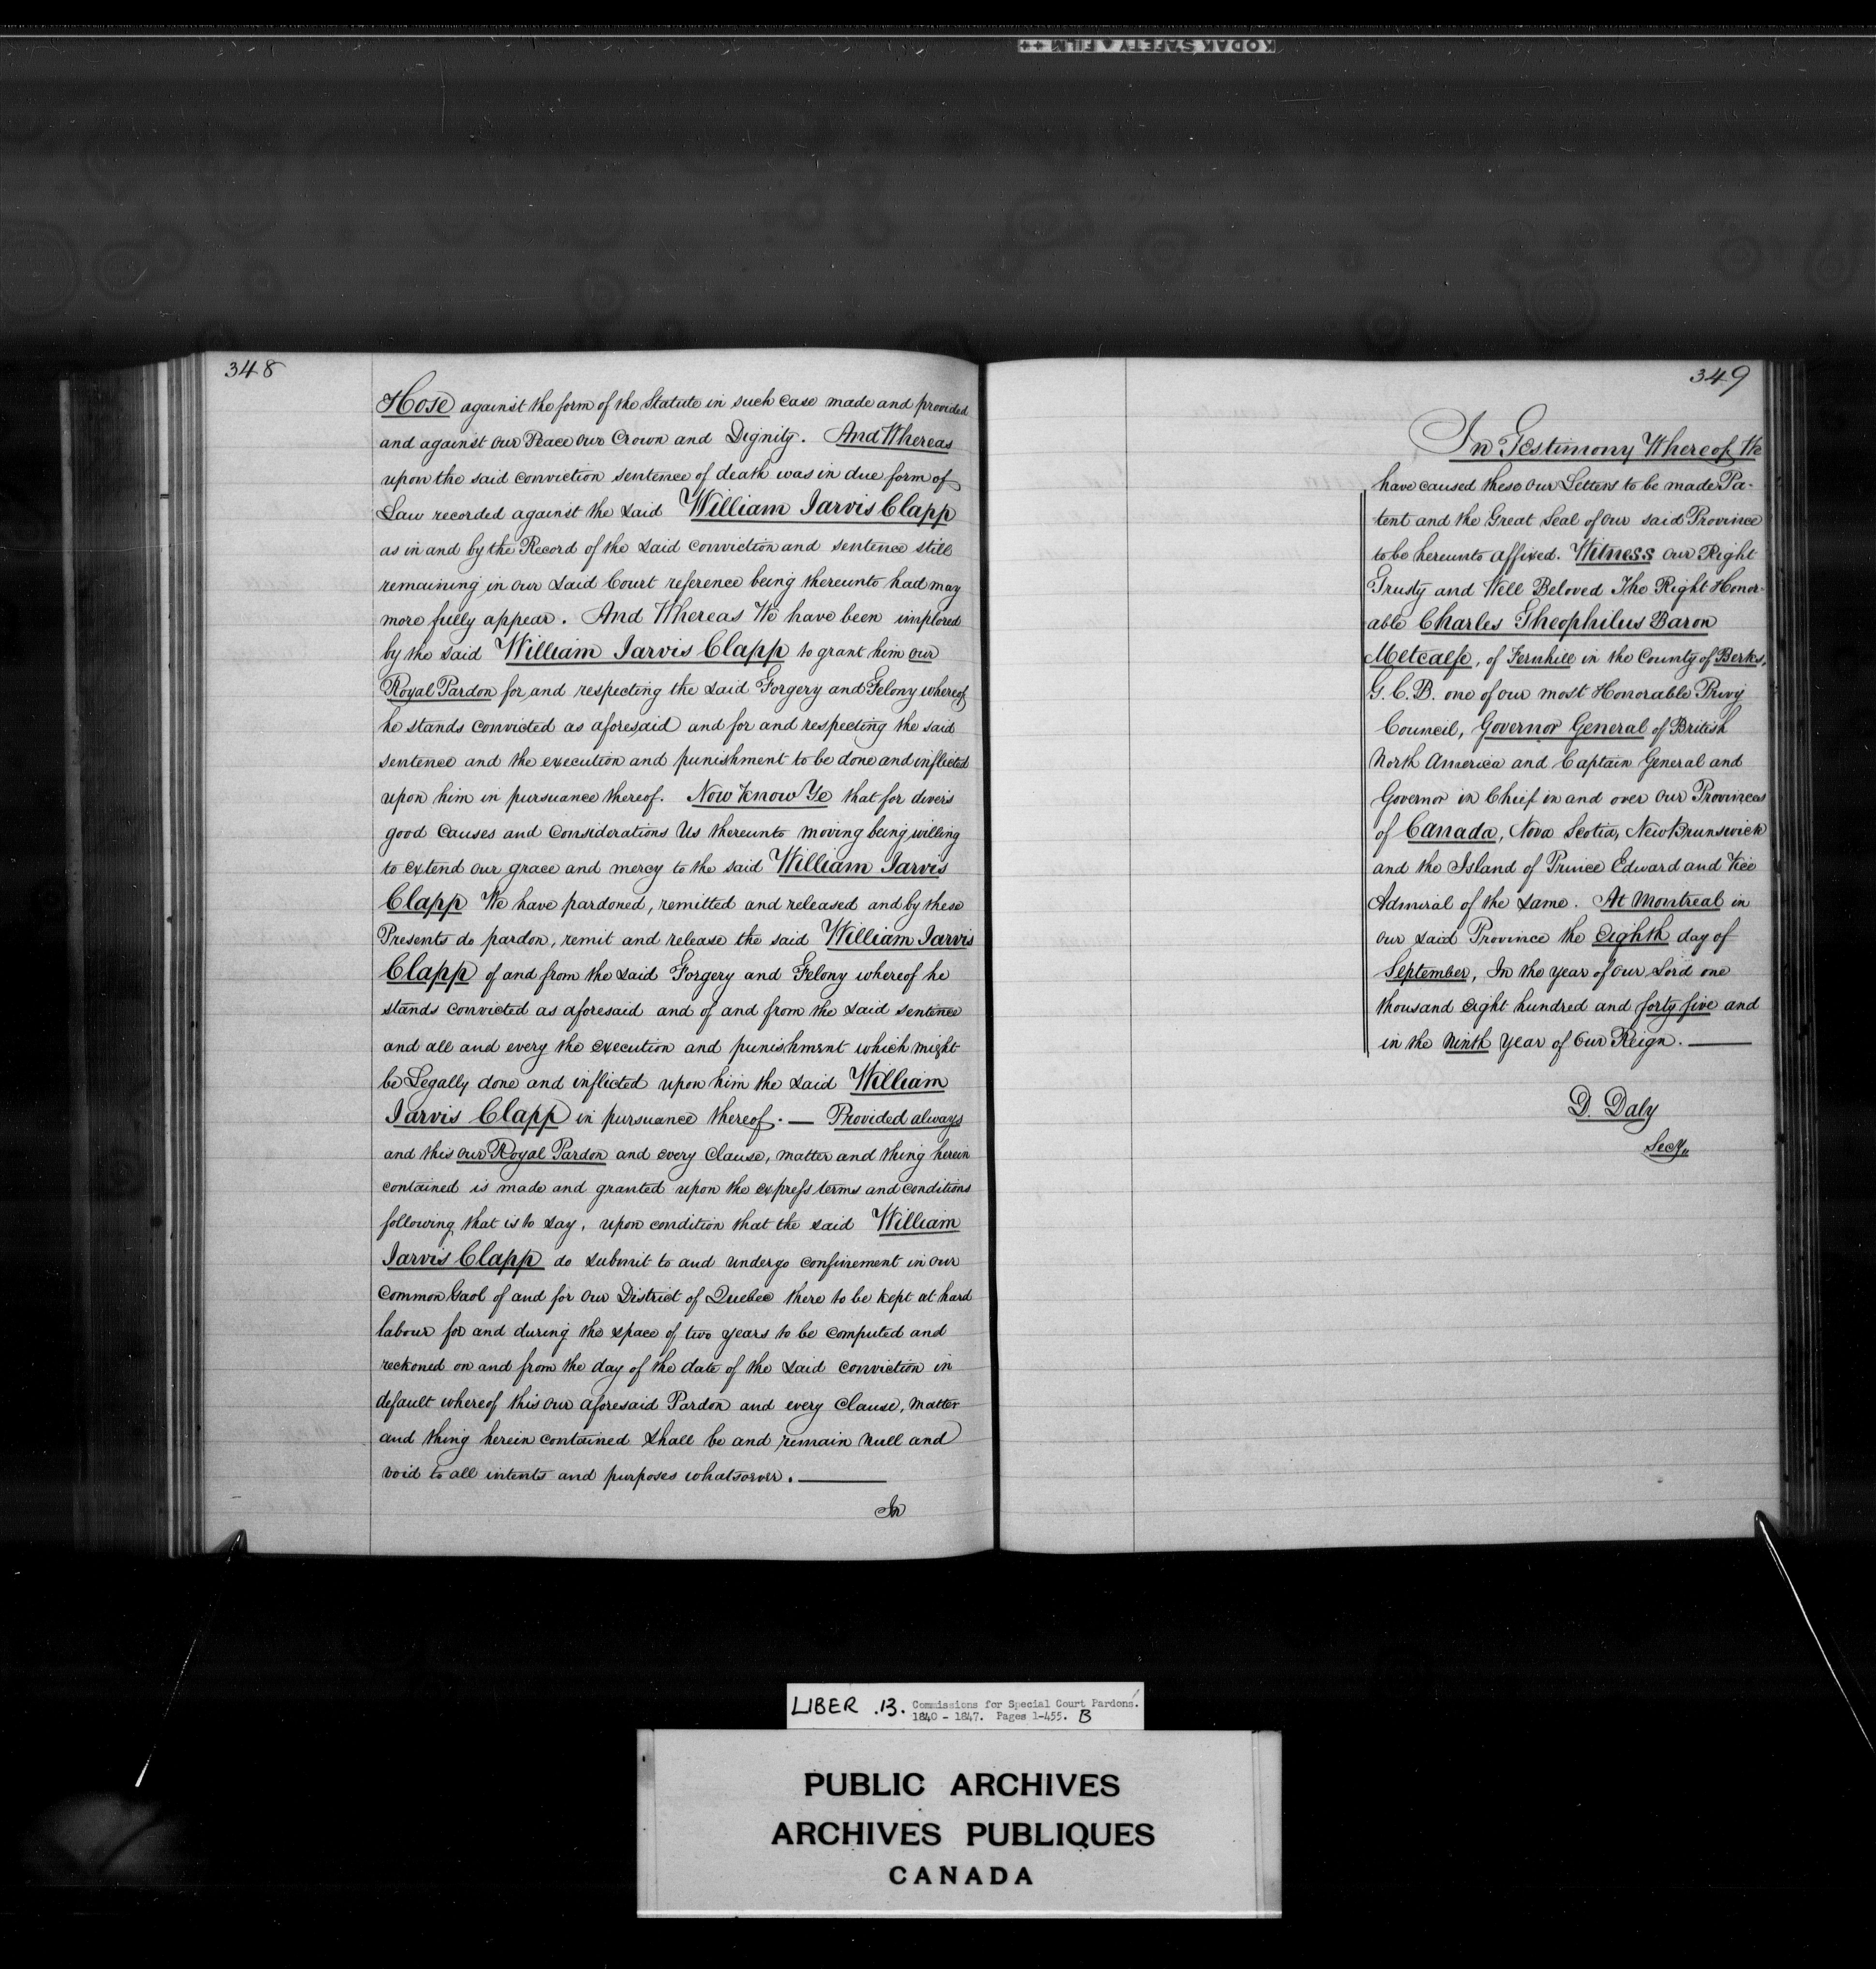 KODAK SAFETY FILM ++
348
Hose against the form of the Statute in such case made and provided
and against our Peace our Crown and Dignity. And Whereas
upon the said conviction sentence of death was in due form of
Law recorded against the said William Jarvis Clapp
as in and by the Record of the said conviction and sentence still
remaining in our said Court reference being thereunto had may
more fully appear. And Whereas We have been implored
by the said William Jarvis Clapp to grant him our
Royal Pardon for and respecting the said Forgery and Felony whereof
he stands convicted as aforesaid and for and respecting the said
sentence and the execution and punishment to be done and inflicted
upon him in pursuance thereof. Now Know Ye that for divers
good causes and considerations Us thereunto moving being willing
to extend our grace and mercy to the said William Jarvis
Clapp We have pardoned, remitted and released and by these
Presents do pardon, remit and release the said William Jarvis
Clapp of and from the said Forgery and Felony whereof he
stands convicted as aforesaid and of and from the said sentence
and all and every the execution and punishment which might
be Legally done and inflicted upon him the said William
Jarvis Clapp in pursuance thereof. — Provided always
and this our Royal Pardon and every Clause, matter and thing herein
contained is made and granted upon the express terms and conditions
following that is to say, upon condition that the said William
Jarvis Clapp do submit to and undergo confinement in our
Common Gaol of and for our District of Quebec there to be kept at hard
labour for and during the space of two years to be computed and
reckoned on and from the day of the date of the said conviction in
default whereof this our aforesaid Pardon and every Clause, matter
and thing herein contained shall be and remain null and
void to all intents and purposes whatsoever. —
In
349
In Testimony Whereof We
have caused these our Letters to be made Pa-
tent and the Great Seal of our said Province
to be hereunto affixed. Witness our Right
Trusty and Well Beloved The Right Honor-
able Charles Theophilus Baron
Metcalfe, of Fernhill in the County of Berks,
G.C.B. one of our most Honorable Privy
Council, Governor General of British
North America and Captain General and
Governor in Chief in and over our Provinces
of Canada, Nova Scotia, New Brunswick
and the Island of Prince Edward and Vice
Admiral of the same. At Montreal in
our said Province the eighth day of
September, In the year of our Lord one
thousand eight hundred and forty five and
in the ninth year of Our Reign. —
D. Daly
Secy.
LIBER .B. Commissions for Special Court Pardons.
1840 - 1847. Pages 1-455. B
PUBLIC ARCHIVES
ARCHIVES PUBLIQUES
CANADA